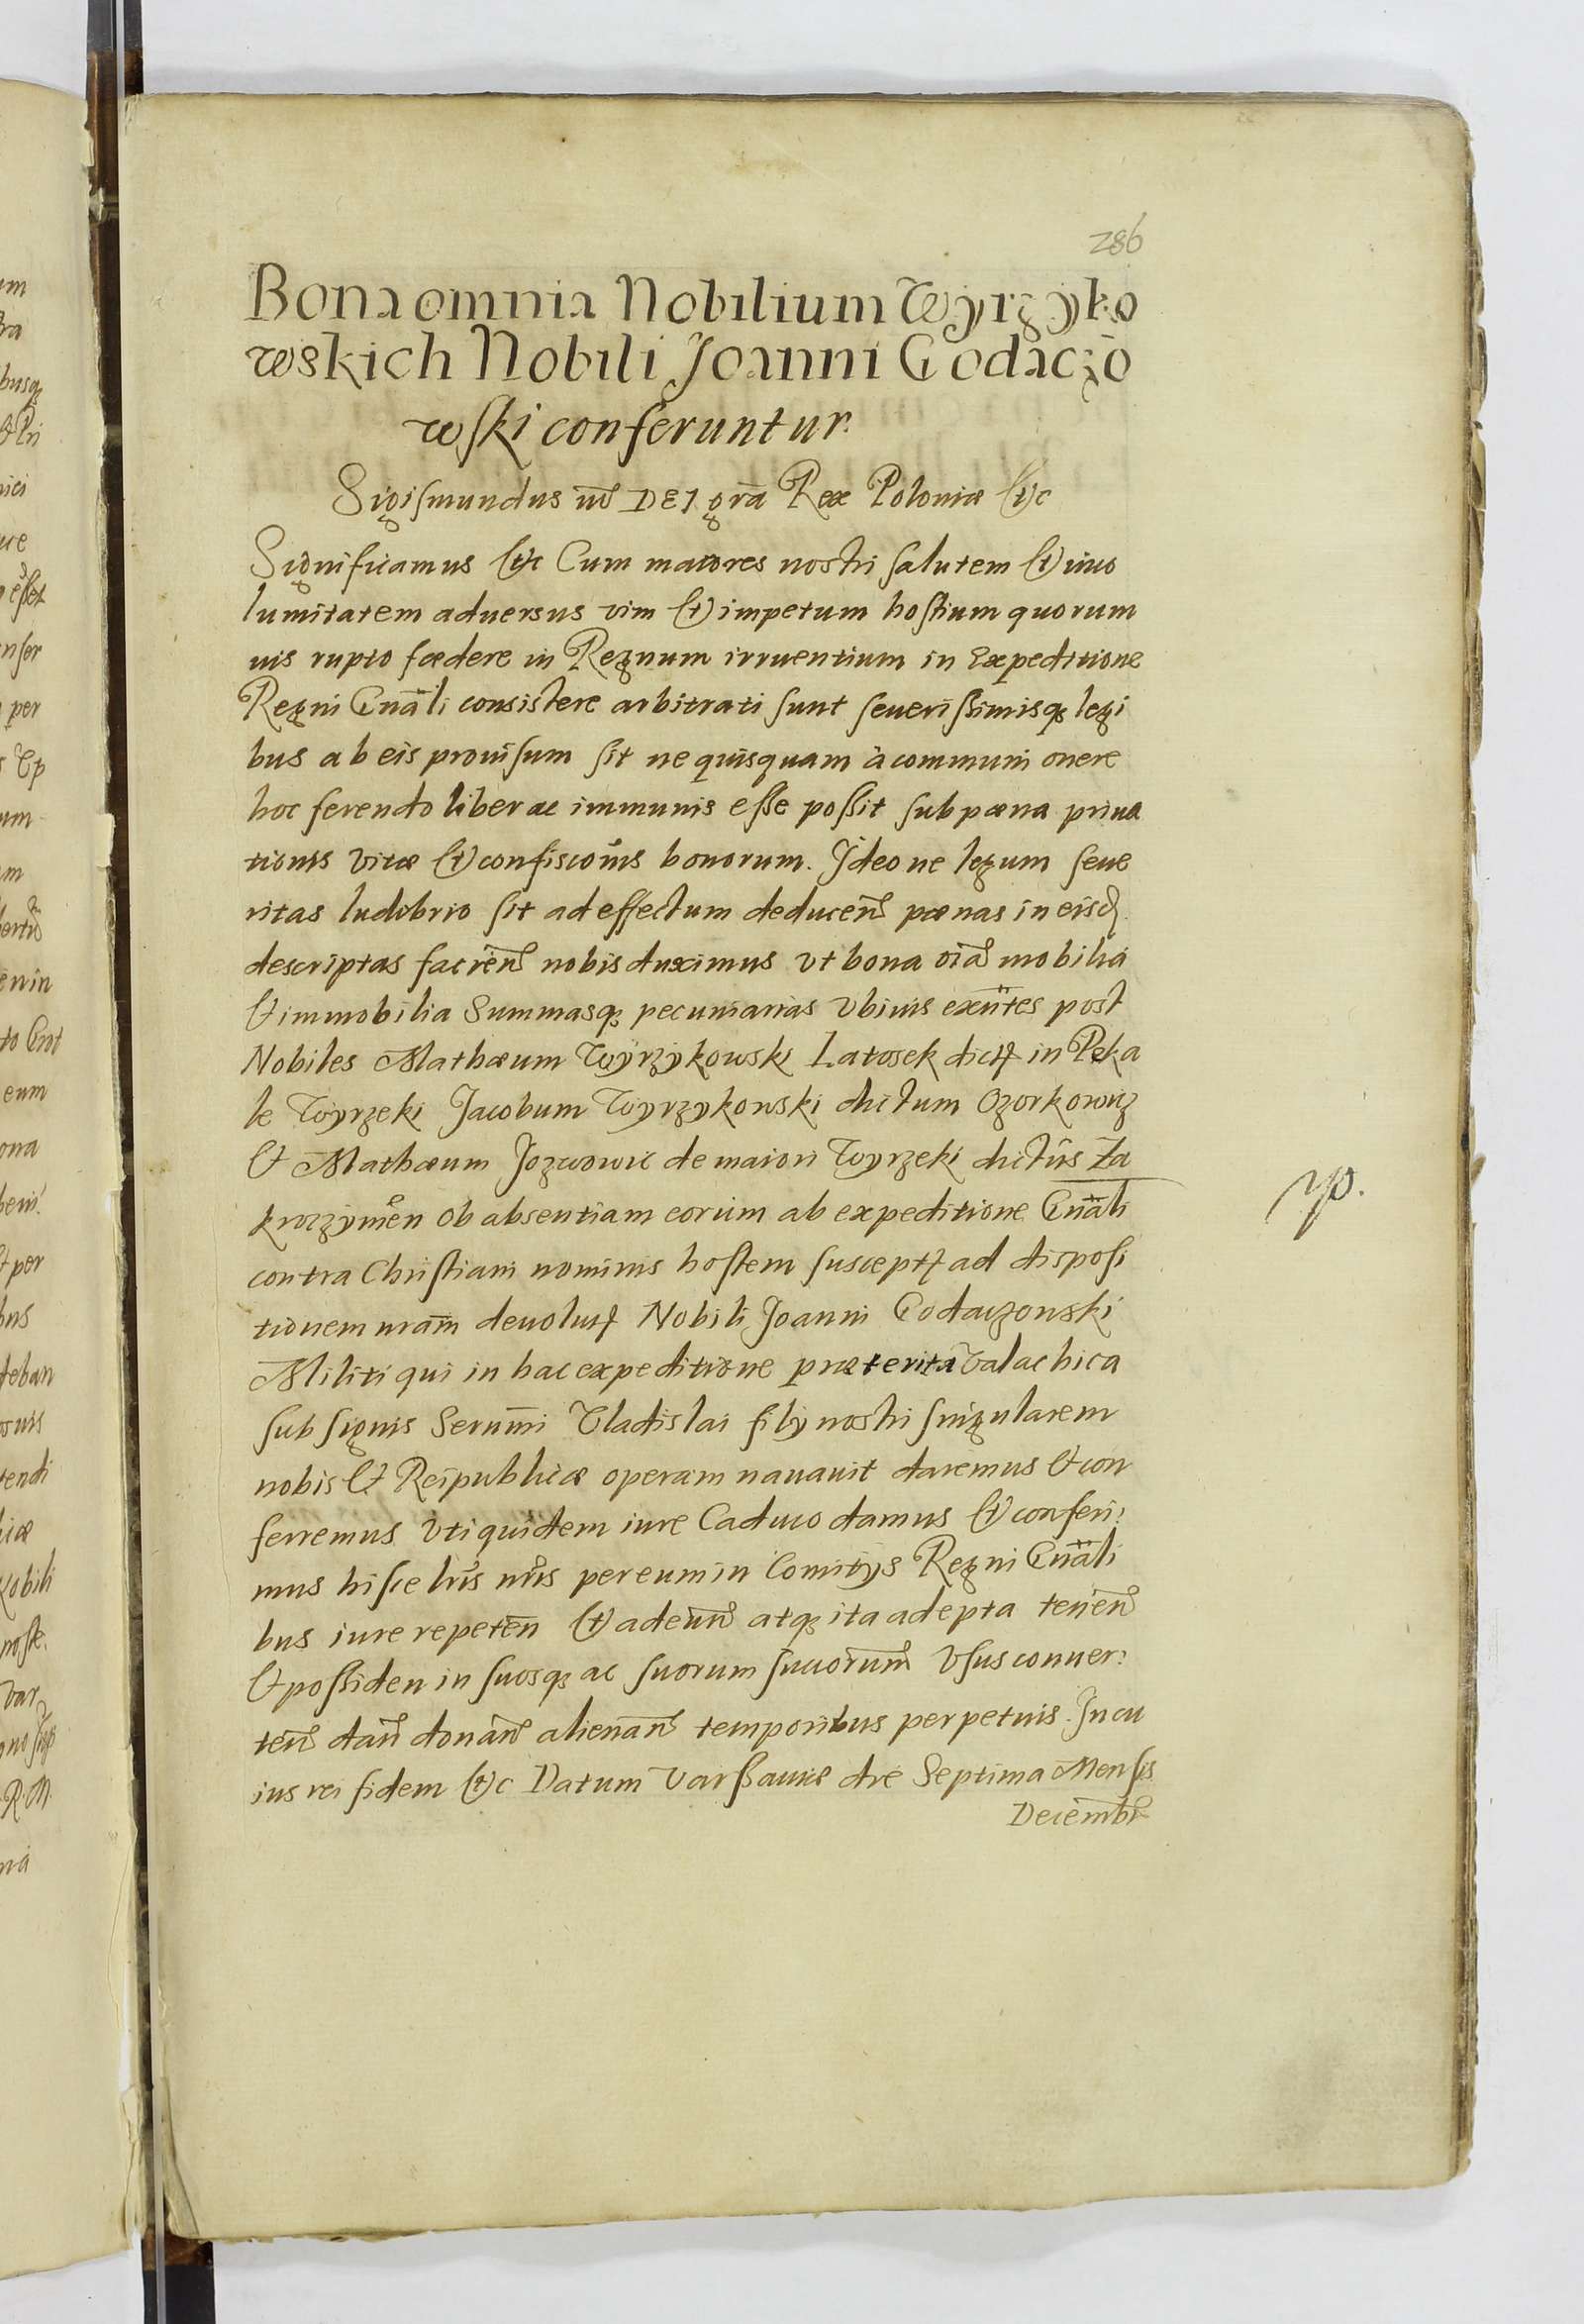 286
Bona omnia Nobilium Wyrzyko
wskich Nobili Joanni Godaczo
wski conferuntur.
Sigismundus DEI grã Rex Poloniæ &c
Significamus &c Cum maiores nostri salutem & inco
lumitatem aduersus vim & impetum hostium quorum
uis rupto fœdere in Regnum irruentium in Expeditione
Regni Gnãli consistere arbitrati sunt seuerissimisq legi
bus ab eis prouisum sit ne quisquam à communi onere
hoc ferendo liber ac immunis esse possit sub pæna priua
tionis vitæ & confiscõnis bonorum. Ideo ne legum seue
ritas ludibrio sit ad effectum deducen̄ pænas in eisd
descriptas facien̄ nobis duximus vt bona oĩa mobilia
& immobilia Summasq pecuniarias vbiuis exñtes post
Nobiles Mathæum Wyrzykowski Latosek dict in Peka
le Wyrzeki Jacobum Wyrzykowski dictum Ozorkowicz
& Mathæum Jozwowic de maiori Wyrzeki dictus Za
kroczymen ob absentiam eorum ab expeditione Gnãli
contra Christiani nominis hostem suscept ad disposi
tionem nr̃am deuolut Nobili Joanni Godaczowski
Militi qui in hac expeditione præterita Valachica
sub signis Serenmi Vladislai filij nostri singularem
nobis & Reipublicæ operam nauauit daremus & con
ferremus vti quidem iure Caduco damus & conferi:
mus hisce lrĩs nrĩs per eum in Comitijs Regni Gnãli
bus iure repeten̄ & adeun̄ atq ita adepta tenen̄
& possiden in suosq ac suorum succorum̄ vsus conuer:
ten̄ dan̄ donan̄ alienan̄ temporibus perpetuis. In cu
ius rei fidem &c Datum Varssauiæ die Septima Mensis
Decembr